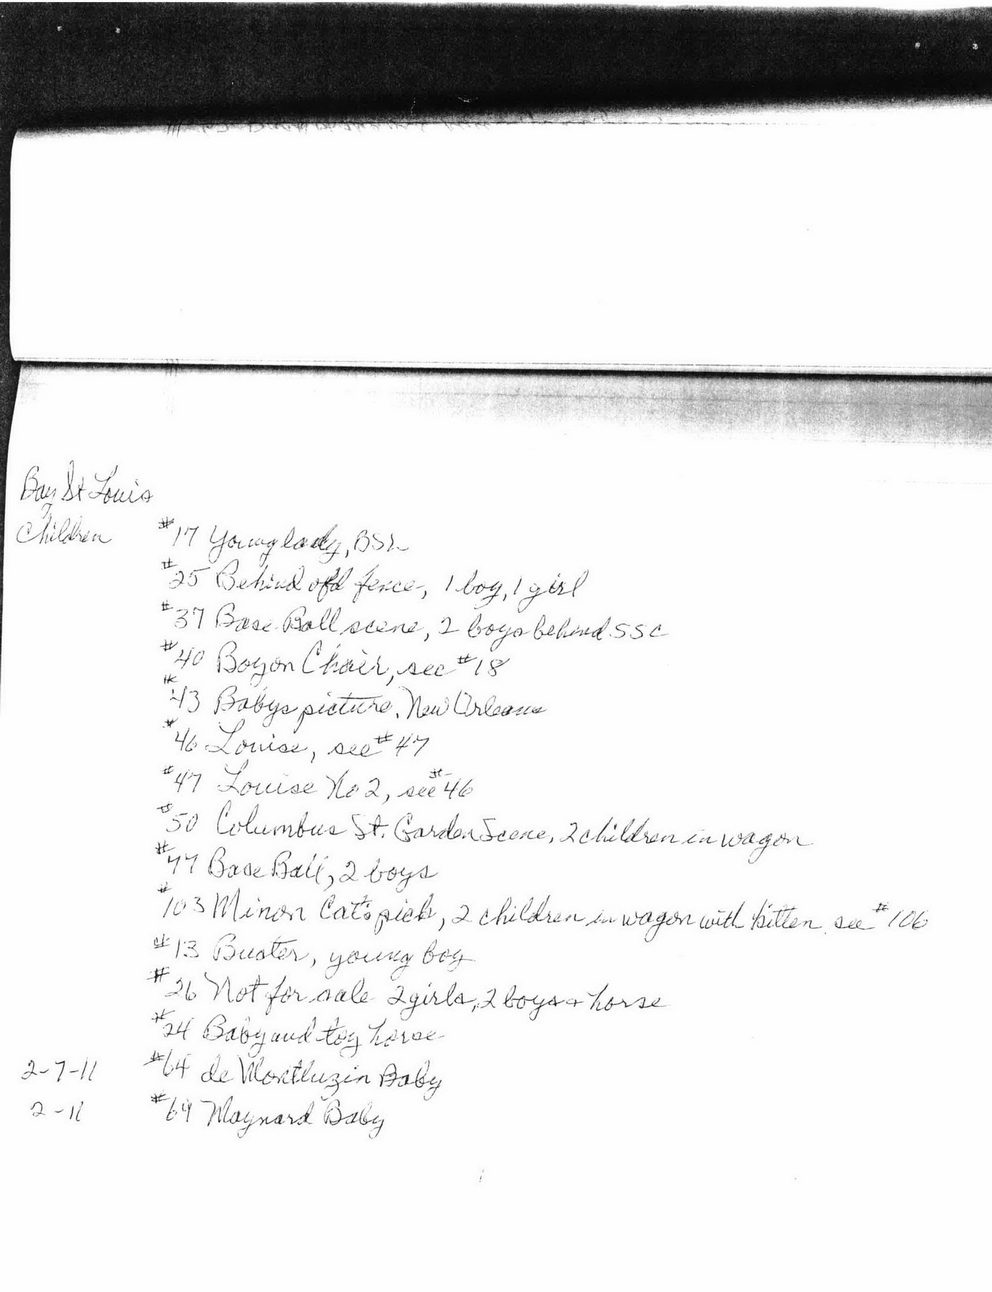 Bay St Louis
Children
#17 Young lady, BSL
#25 Behind old fence, 1 boy, 1 girl
#37 Base Ball scene, 2 boys behind SSC
#40 Boy on Chair, see #18
#43 Babys picture, New Orleans
#46 Louise, see #47
#47 Louise No 2, see #46
#50 Columbus St. Garden Scene, 2 children in wagon
#77 Base Ball, 2 boys
#103 Minon Cat's pick, 2 children in wagon with kitten see #106
#13 Buster, young boy
#26 Not for sale 2 girls, 2 boys + horse
#24 Baby and toy horse
2-7-11 #64 de Montluzin Baby
2-11 #69 Maynard Baby